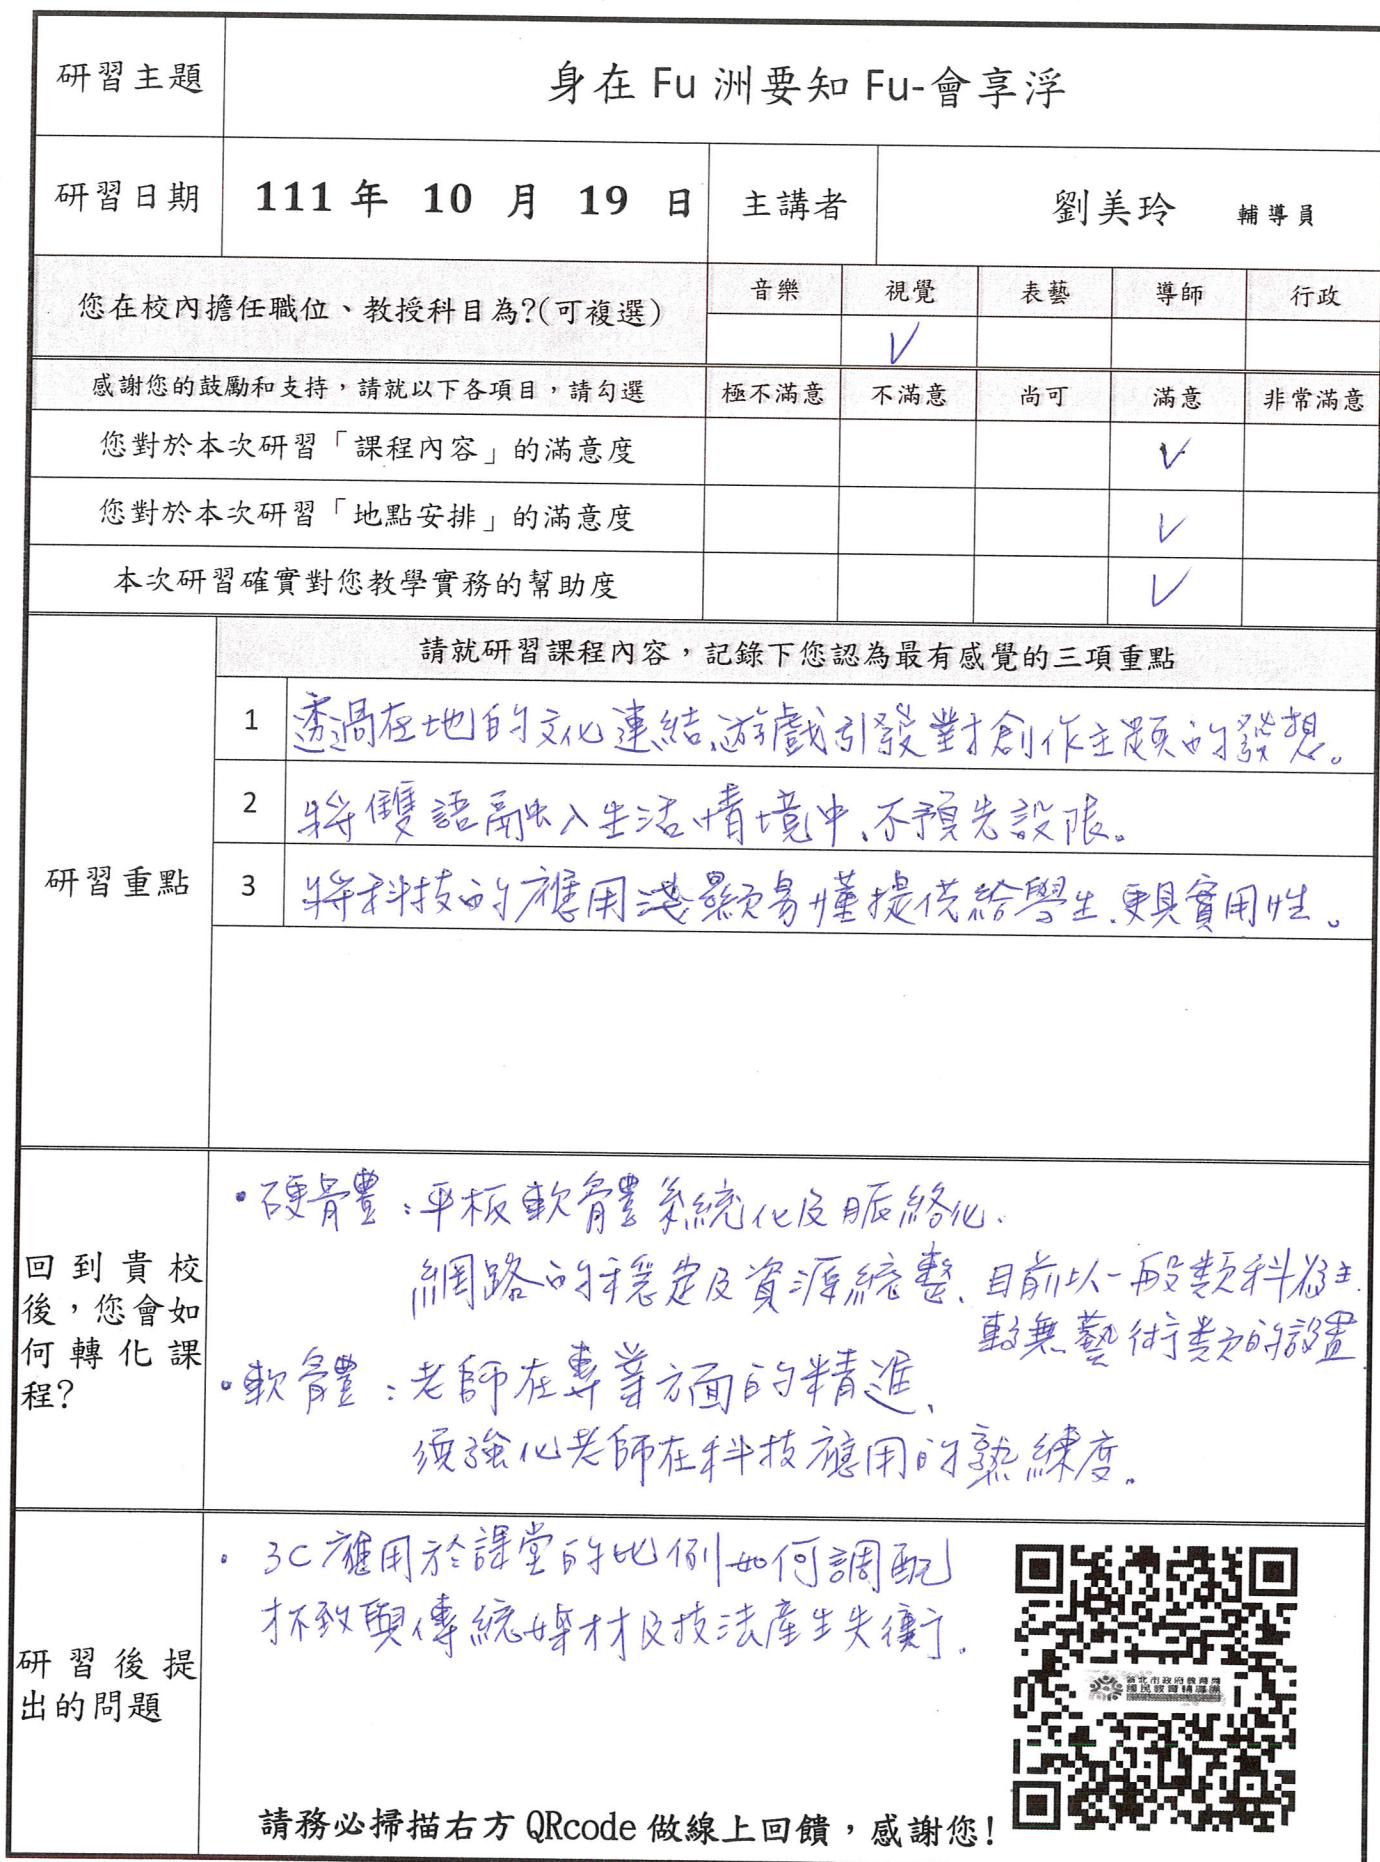 研習主題 身在 Fu 洲要知 Fu-會享浮
研習日期 111 年 10 月 19 日 主講者 劉美玲 輔導員
您在校內擔任職位、教授科目為?(可複選) 音樂 視覺 表藝 導師 行政
V
感謝您的鼓勵和支持，請就以下各項目，請勾選 極不滿意 不滿意 尚可 滿意 非常滿意
您對於本次研習「課程內容」的滿意度 V
您對於本次研習「地點安排」的滿意度 V
本次研習確實對您教學實務的幫助度 V
研習重點
請就研習課程內容，記錄下您認為最有感覺的三項重點
1 透過在地的文化連結、遊戲引發對創作主題的發想。
2 將雙語融入生活情境中、不預先設限。
3 將科技的應用淺顯易懂提供給學生、更具實用性。
回到貴校
後，您會如
何轉化課
程?
•硬體：平板軟體系統化及脈絡化、
網路的穩定及資源統整、目前以一般類科為主、
較無藝術類的設置
•軟體：老師在專業方面的精進、
須強化老師在科技應用的熟練度。
研習後提
出的問題
• 3C應用於課堂的比例如何調配
才不致與傳統媒材及技法產生失衡。
新北市政府教育局
國民教育輔導團
請務必掃描右方 QRcode 做線上回饋，感謝您!